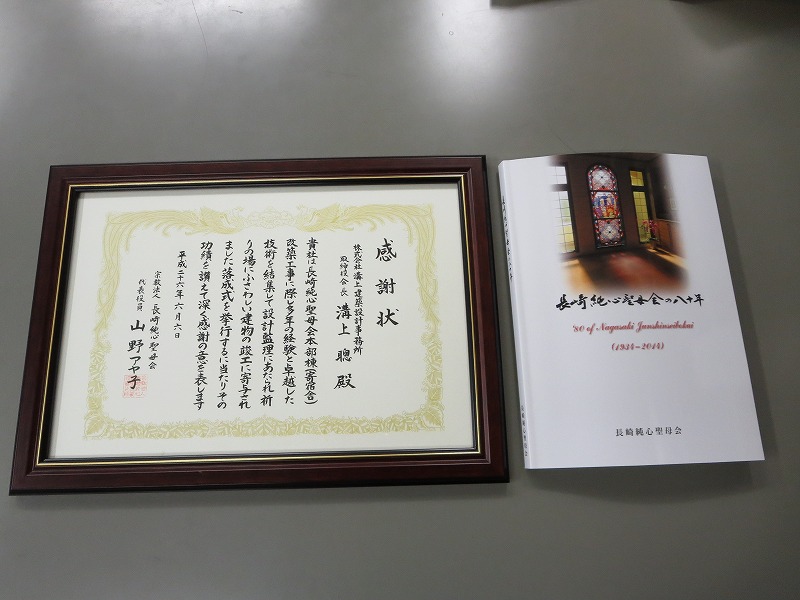 感謝状
株式会社溝上建築設計事務所
取締役会長 溝上聰殿
貴社は長崎純心聖母会本部棟(寄宿舎)
改築工事に際し多年の経験と卓越した
技術を結集して設計監理にあたられ祈
りの場にふさわしい建物の竣工に寄与され
ました落成式を挙行するに当たりその
功績を讃えて深く感謝の意を表します
平成二十六年六月六日
宗教法人 長崎純心聖母会
代表役員 山野アヤ子
長崎純心聖母会の八十年
'80 of Nagasaki Junshinseibokai
(1934-2014)
長崎純心聖母会